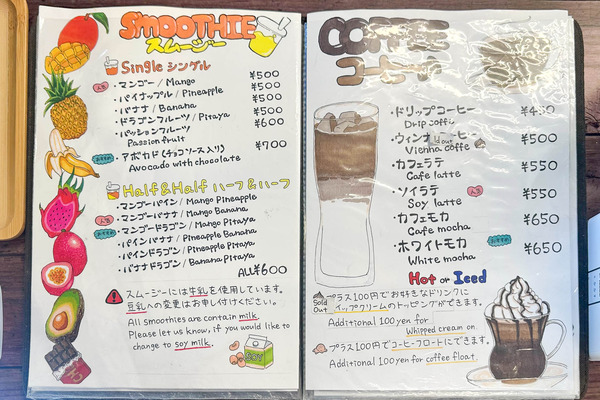 SMOOTHIE
スムージー
Single シングル
人気 ・マンゴー / Mango ¥500
・パイナップル / Pineapple ¥500
・バナナ / Banana ¥500
・ドラゴンフルーツ / Pitaya ¥500
・パッションフルーツ ¥600
Passion fruit
おすすめ ・アボカド(チョコソース入り) ¥700
Avocado with chocolate
Half&Half ハーフ&ハーフ
・マンゴーパイン / Mango Pineapple
人気 ・マンゴーバナナ / Mango Banana
おすすめ ・マンゴードラゴン / Mango Pitaya
・パインバナナ / Pineapple Banana
・パインドラゴン / Pineapple Pitaya
・バナナドラゴン / Banana Pitaya
ALL ¥600
スムージーには牛乳を使用しています。
豆乳への変更はお申し付けください。
All smoothies are contain milk.
Please let us know, if you would like to
change to soy milk.
SOY
COFFEE
コーヒー
・ドリップコーヒー ¥450
Drip coffee
・ウィンナーコーヒー ¥500
Vienna coffee
・カフェラテ ¥550
Cafe latte
・ソイラテ 人気 ¥550
Soy latte
・カフェモカ ¥650
Cafe mocha
・ホワイトモカ おすすめ ¥650
White mocha
Hot or Iced
プラス100円でお好きなドリンクに
Sold Out
イップクリームのトッピングができます。
Additional 100 yen for
Whipped cream on.
プラス100円でコーヒーフロートにできます。
Additional 100 yen for coffee float.